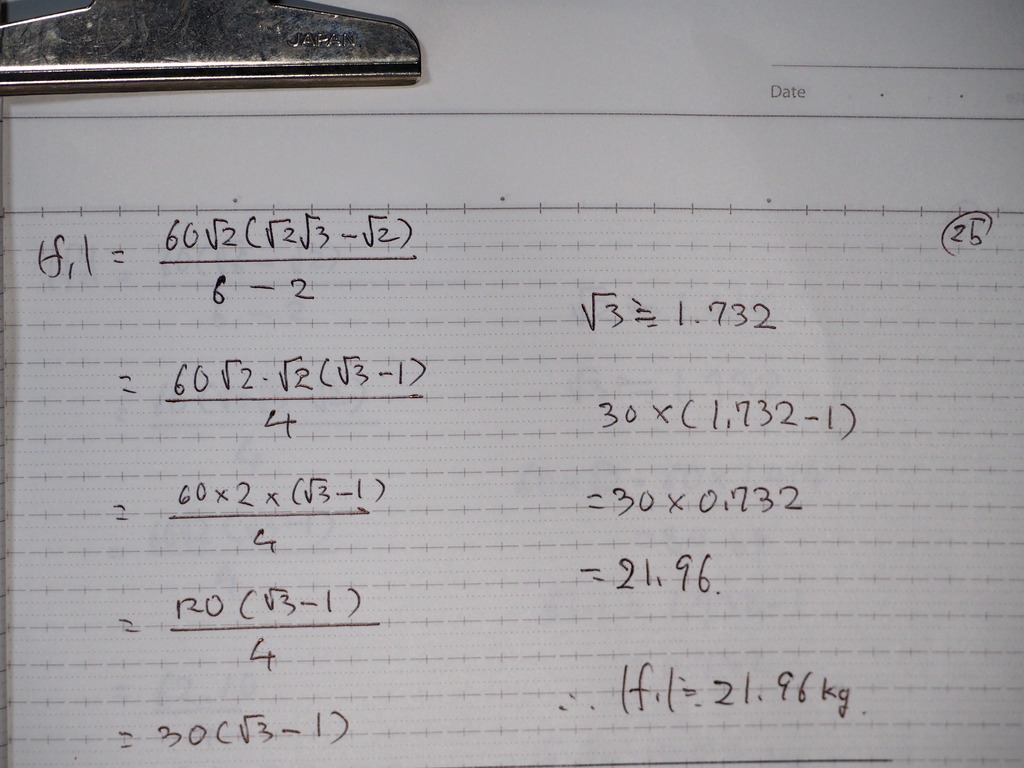 JAPAN
Date
25
|f₁| = 60√2(√2√3-√2) / 6-2
= 60√2·√2(√3-1) / 4
= 60×2×(√3-1) / 4
= 120(√3-1) / 4
= 30(√3-1)
√3≒1.732
30×(1.732-1)
=30×0.732
=21.96.
∴ |f₁|≒21.96kg.